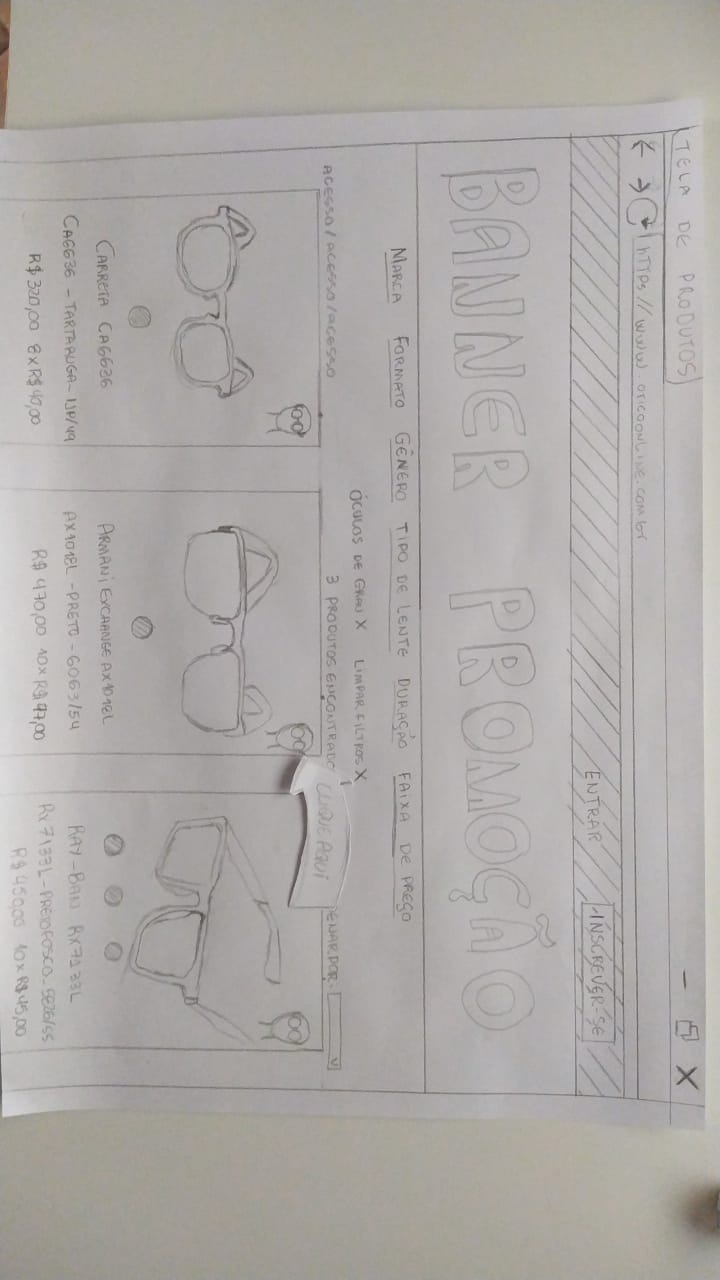 TELA DE PRODUTOS
HTTPS//WWW.OTICOONLINE.COM.BR
ENTRAR INSCREVER-SE
BANNER PROMOÇÃO
MARCA FORMATO GÊNERO TIPO DE LENTE DURAÇÃO FAIXA DE PREÇO
ÓCULOS DE GRAU X LIMPAR FILTROS X
ACESSO/ACESSO/ACESSO 3 PRODUTOS ENCONTRADO CLIQUE AQUI DENAR POR:
CARRETA CA6636
CA6636 - TARTARUGA - /49
R$ 320,00 8x R$ 40,00
ARMANI EXCHANGE AX1018L
AX1018L - PRETO - 6063/54
R$ 470,00 10x R$ 47,00
RAY-BAN RX7133L
RX7133L - PRETO FOSCO - 5826/55
R$ 450,00 10x R$ 45,00